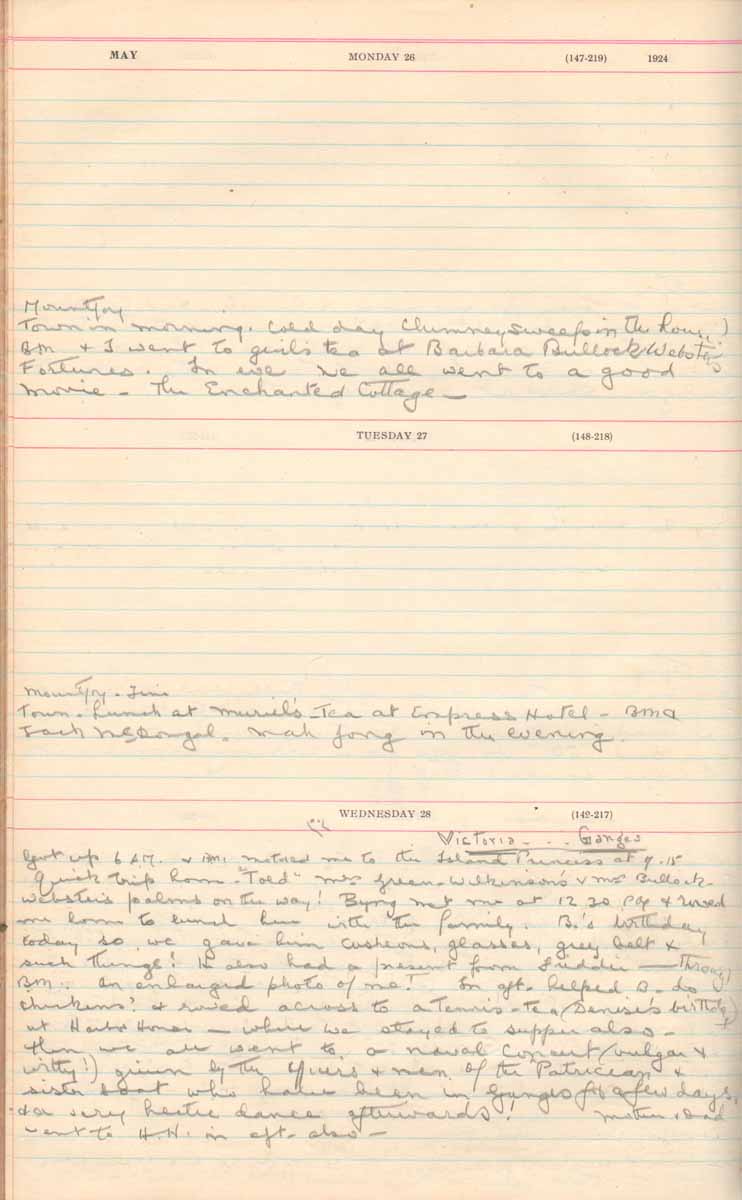 MAY MONDAY 26 (147-219) 1924
Mountjoy
Town in morning. Cold day Chimney Sweeps in the house!)
BM & I went to girls tea at Barbara Bullock-Webster's
Fortunes. In eve we all went to a good
movie – The Enchanted Cottage –
TUESDAY 27 (148-218)
Mountjoy - Fine
Town. Lunch at Muriel's – Tea at Empress Hotel – BM &
Jack McDougal. Mah Jong in the evening.
WEDNESDAY 28 (149-217)
Victoria . . . Ganges
Got up 6 A.M. & BM. motored me to the Island Princess at 9.15
Quick trip home. "Told" Mrs Green-Wilkinson's & Mrs Bullock-
Webster's palms on the way! Byng met me at 12 30 & rowed
me home to lunch here with the family. B.'s birthday
today so we gave him cushions, glasses, grey belt &
such things! He also had a present from – through
BM. an enlarged photo of me! In aft. helped B. do
chickens? & rowed across to a Tennis-Tea (Denise's birthday)
at Harbor House – where we stayed to supper also –
Then we all went to a naval Concert (vulgar &
witty!) given by the Officers & men of the Patrician &
sister boat who have been in Ganges for a few days,
& a very hectic dance afterwards! Mother & Dad
went to H.H. in aft. also –